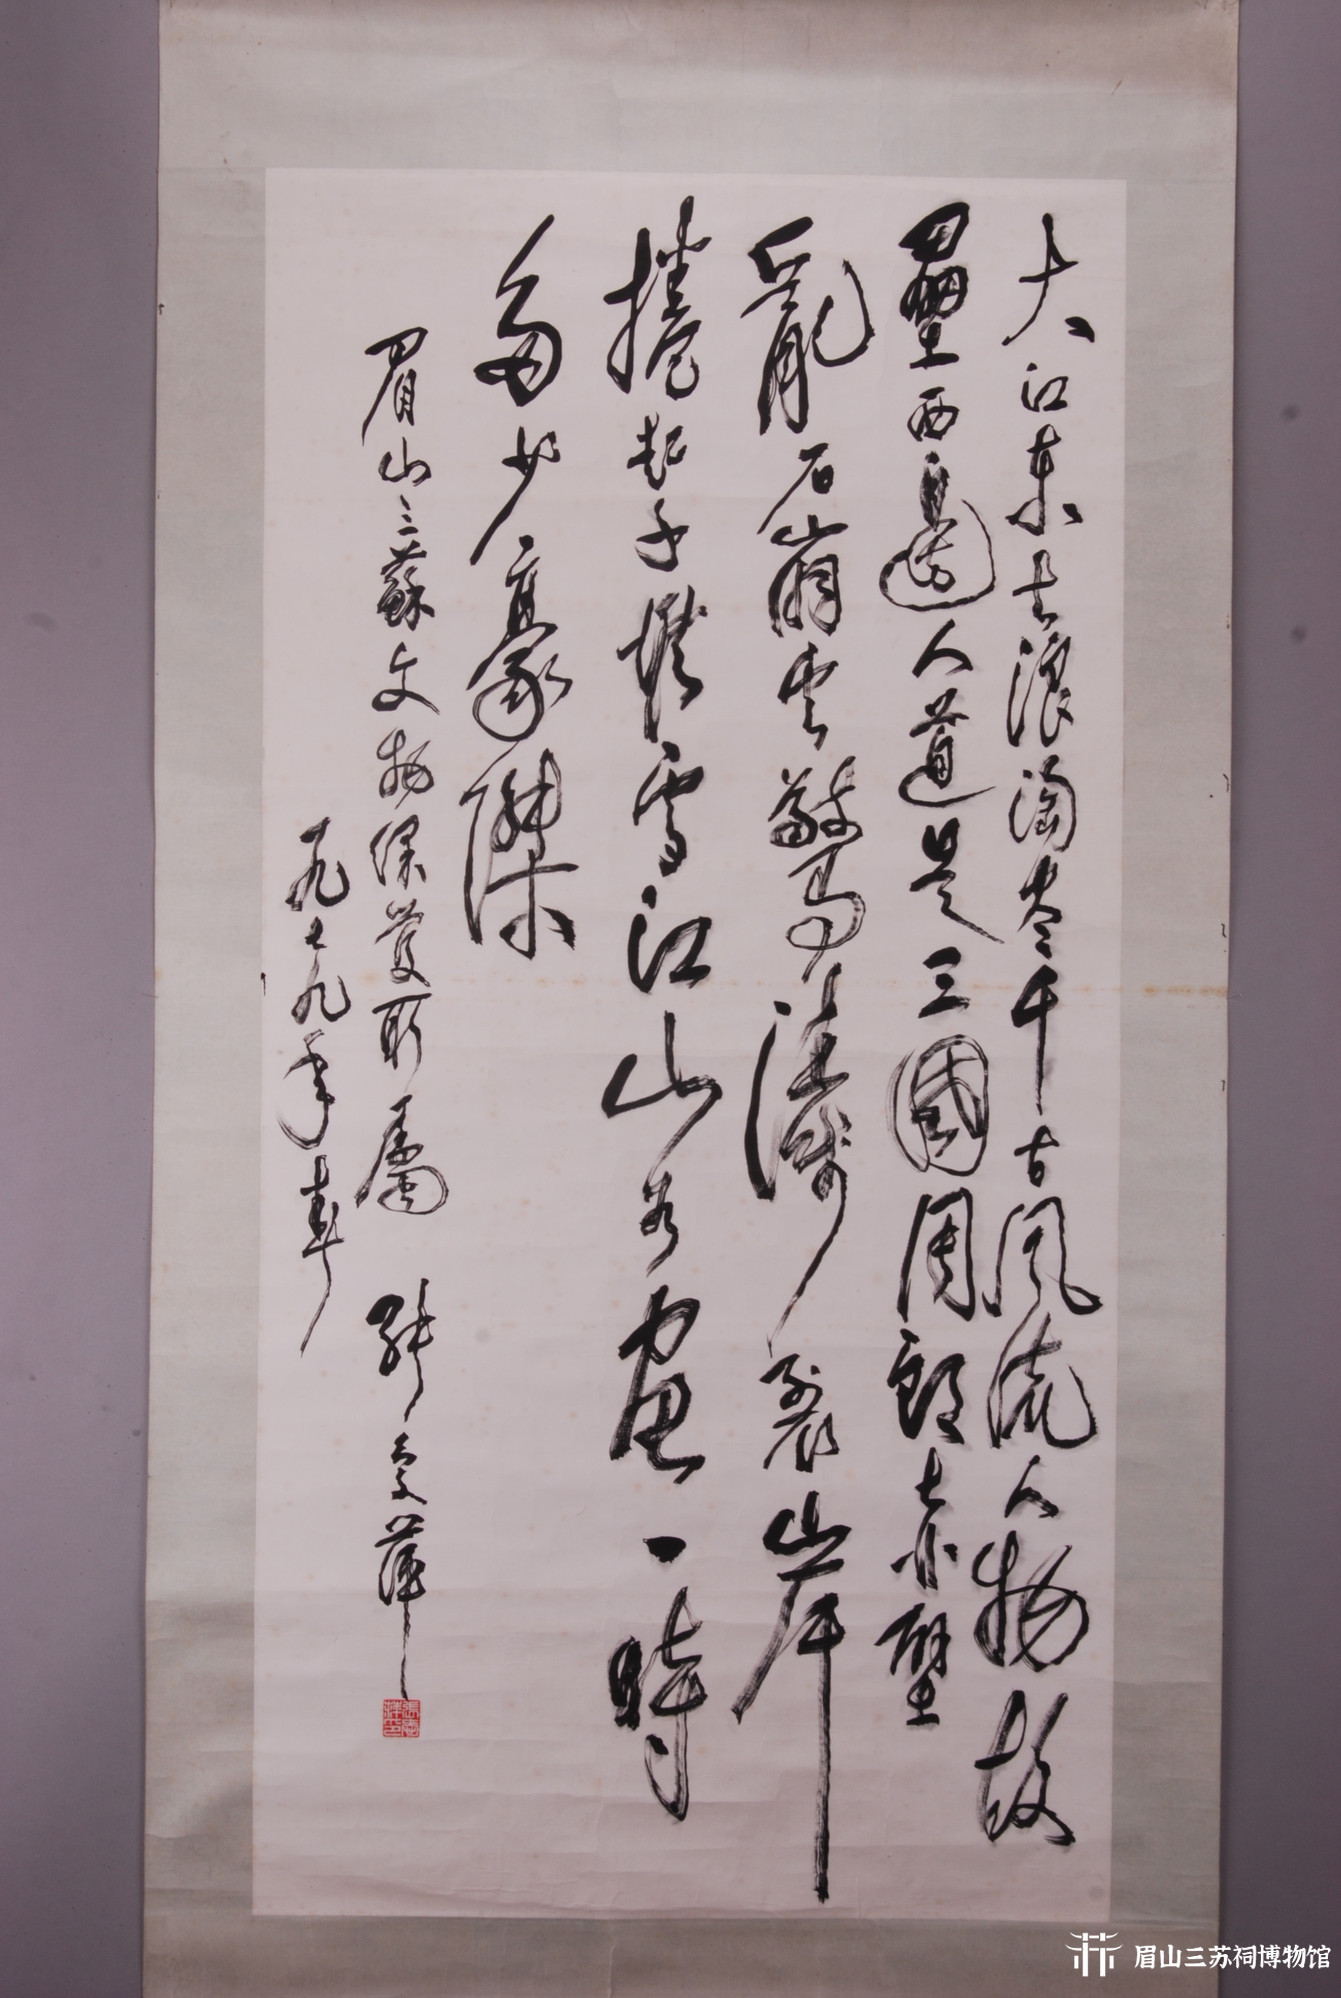 大江東去浪淘尽千古風流人物故
壘西邊人道是三國周郎赤壁
亂石崩云驚濤裂岸
捲起千堆雪江山如畫一時
多少豪傑
眉山三蘇文物保護所屬 張愛萍
一九七九年春
張愛萍印
眉山三苏祠博物馆